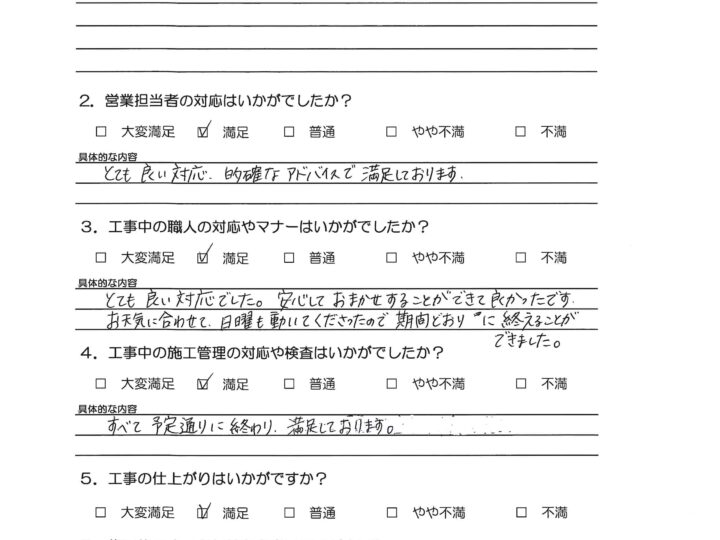 2. 営業担当者の対応はいかがでしたか?
□ 大変満足 ☑ 満足 □ 普通 □ やや不満 □ 不満
具体的な内容
とても良い対応. 的確なアドバイスで満足しております.
3. 工事中の職人の対応やマナーはいかがでしたか?
□ 大変満足 ☑ 満足 □ 普通 □ やや不満 □ 不満
具体的な内容
とても良い対応でした。安心しておまかせすることができて良かったです.
お天気に合わせて、日曜も動いてくださったので期間どおりに終えることが
できました。
4. 工事中の施工管理の対応や検査はいかがでしたか?
□ 大変満足 ☑ 満足 □ 普通 □ やや不満 □ 不満
具体的な内容
すべて予定通りに終わり、満足しております。
5. 工事の仕上がりはいかがですか?
□ 大変満足 ☑ 満足 □ 普通 □ やや不満 □ 不満